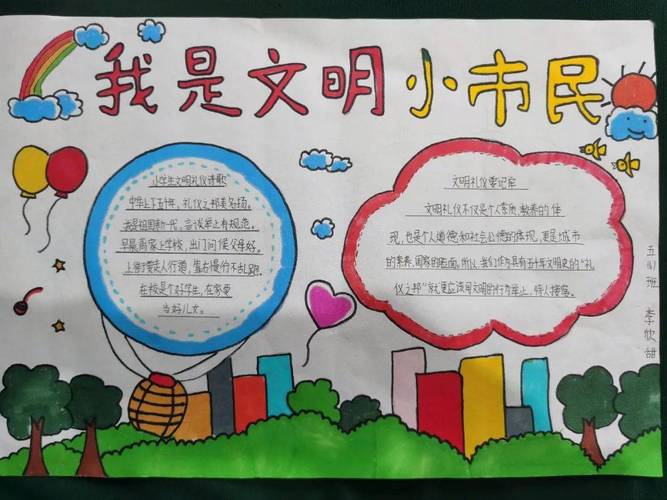 我是文明小市民
小学生文明礼仪诗歌
中华上下五千年，礼仪之邦美名扬。
我是祖国新一代，言谈举止有规范。
早晨离家上学校，出门问候父母好。
上街要走人行道，靠右慢行不乱跑
在校是个好学生，在家要
当好儿女。
文明礼仪要记牢
文明礼仪不仅是个人素质、教养的体
现，也是个人道德和社会公德的体现，更是城市
的素养、国家的脸面。所以，我们作为具有五千年文明史的“礼
仪之邦”就更应该用文明的行为举止，待人接客。
五(1)班 李欣甜